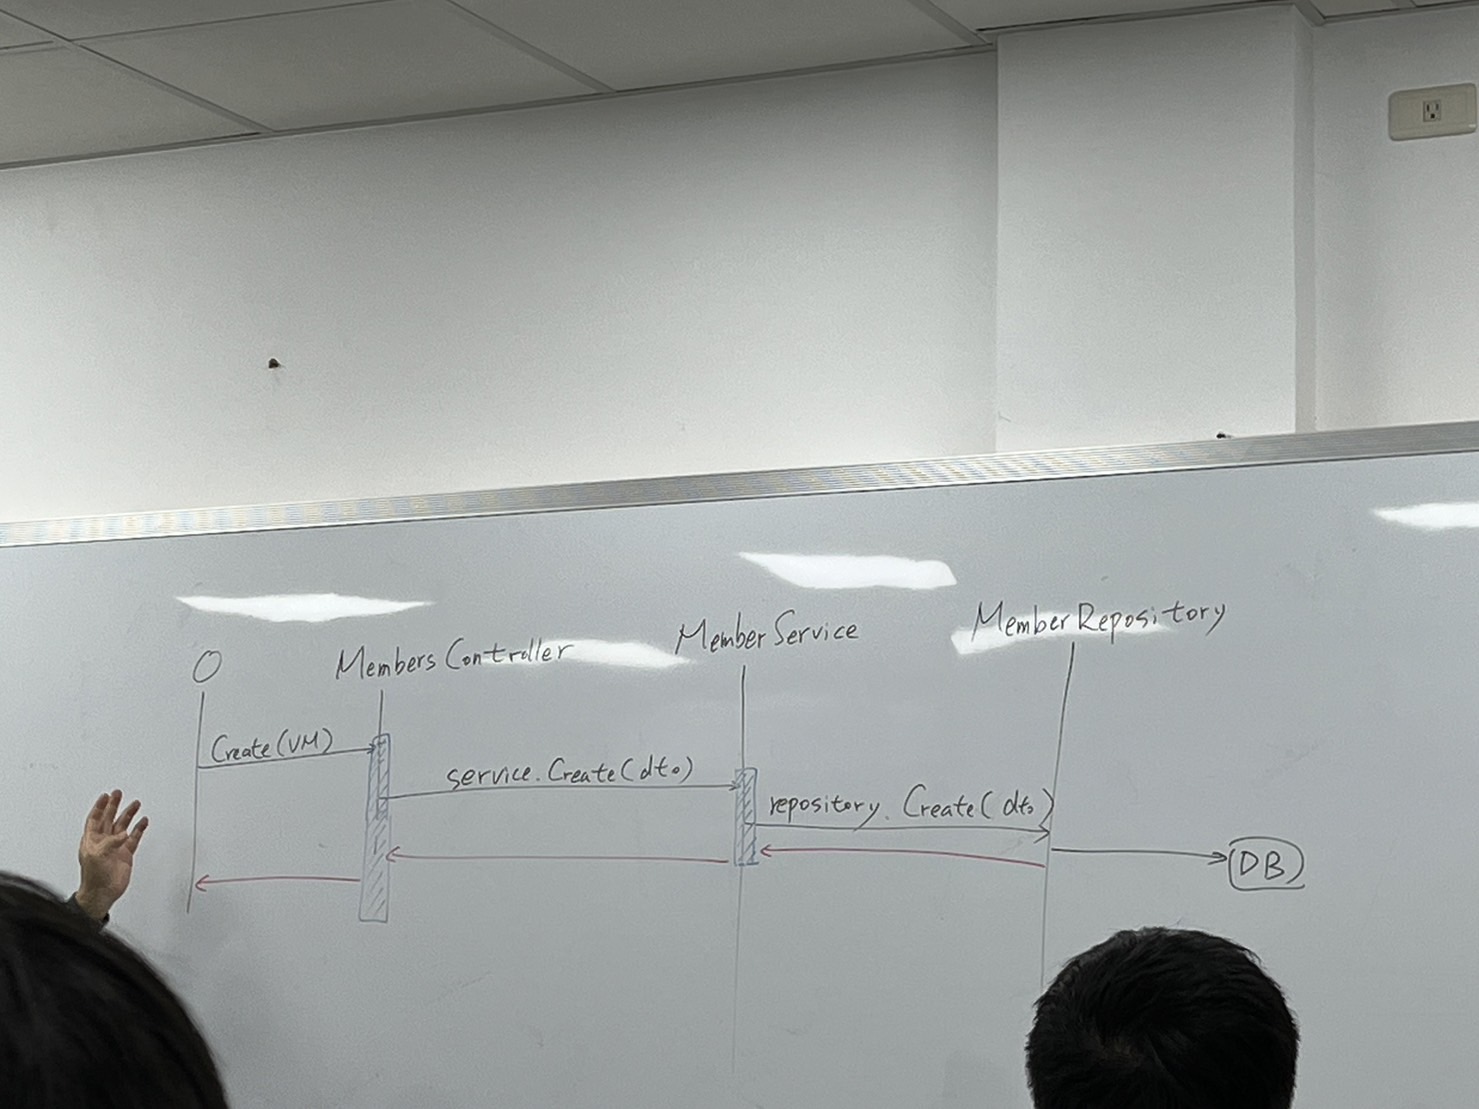 O
Members Controller
Member Service
Member Repository
Create(VM)
service.Create(dto)
repository. Create(dto)
DB